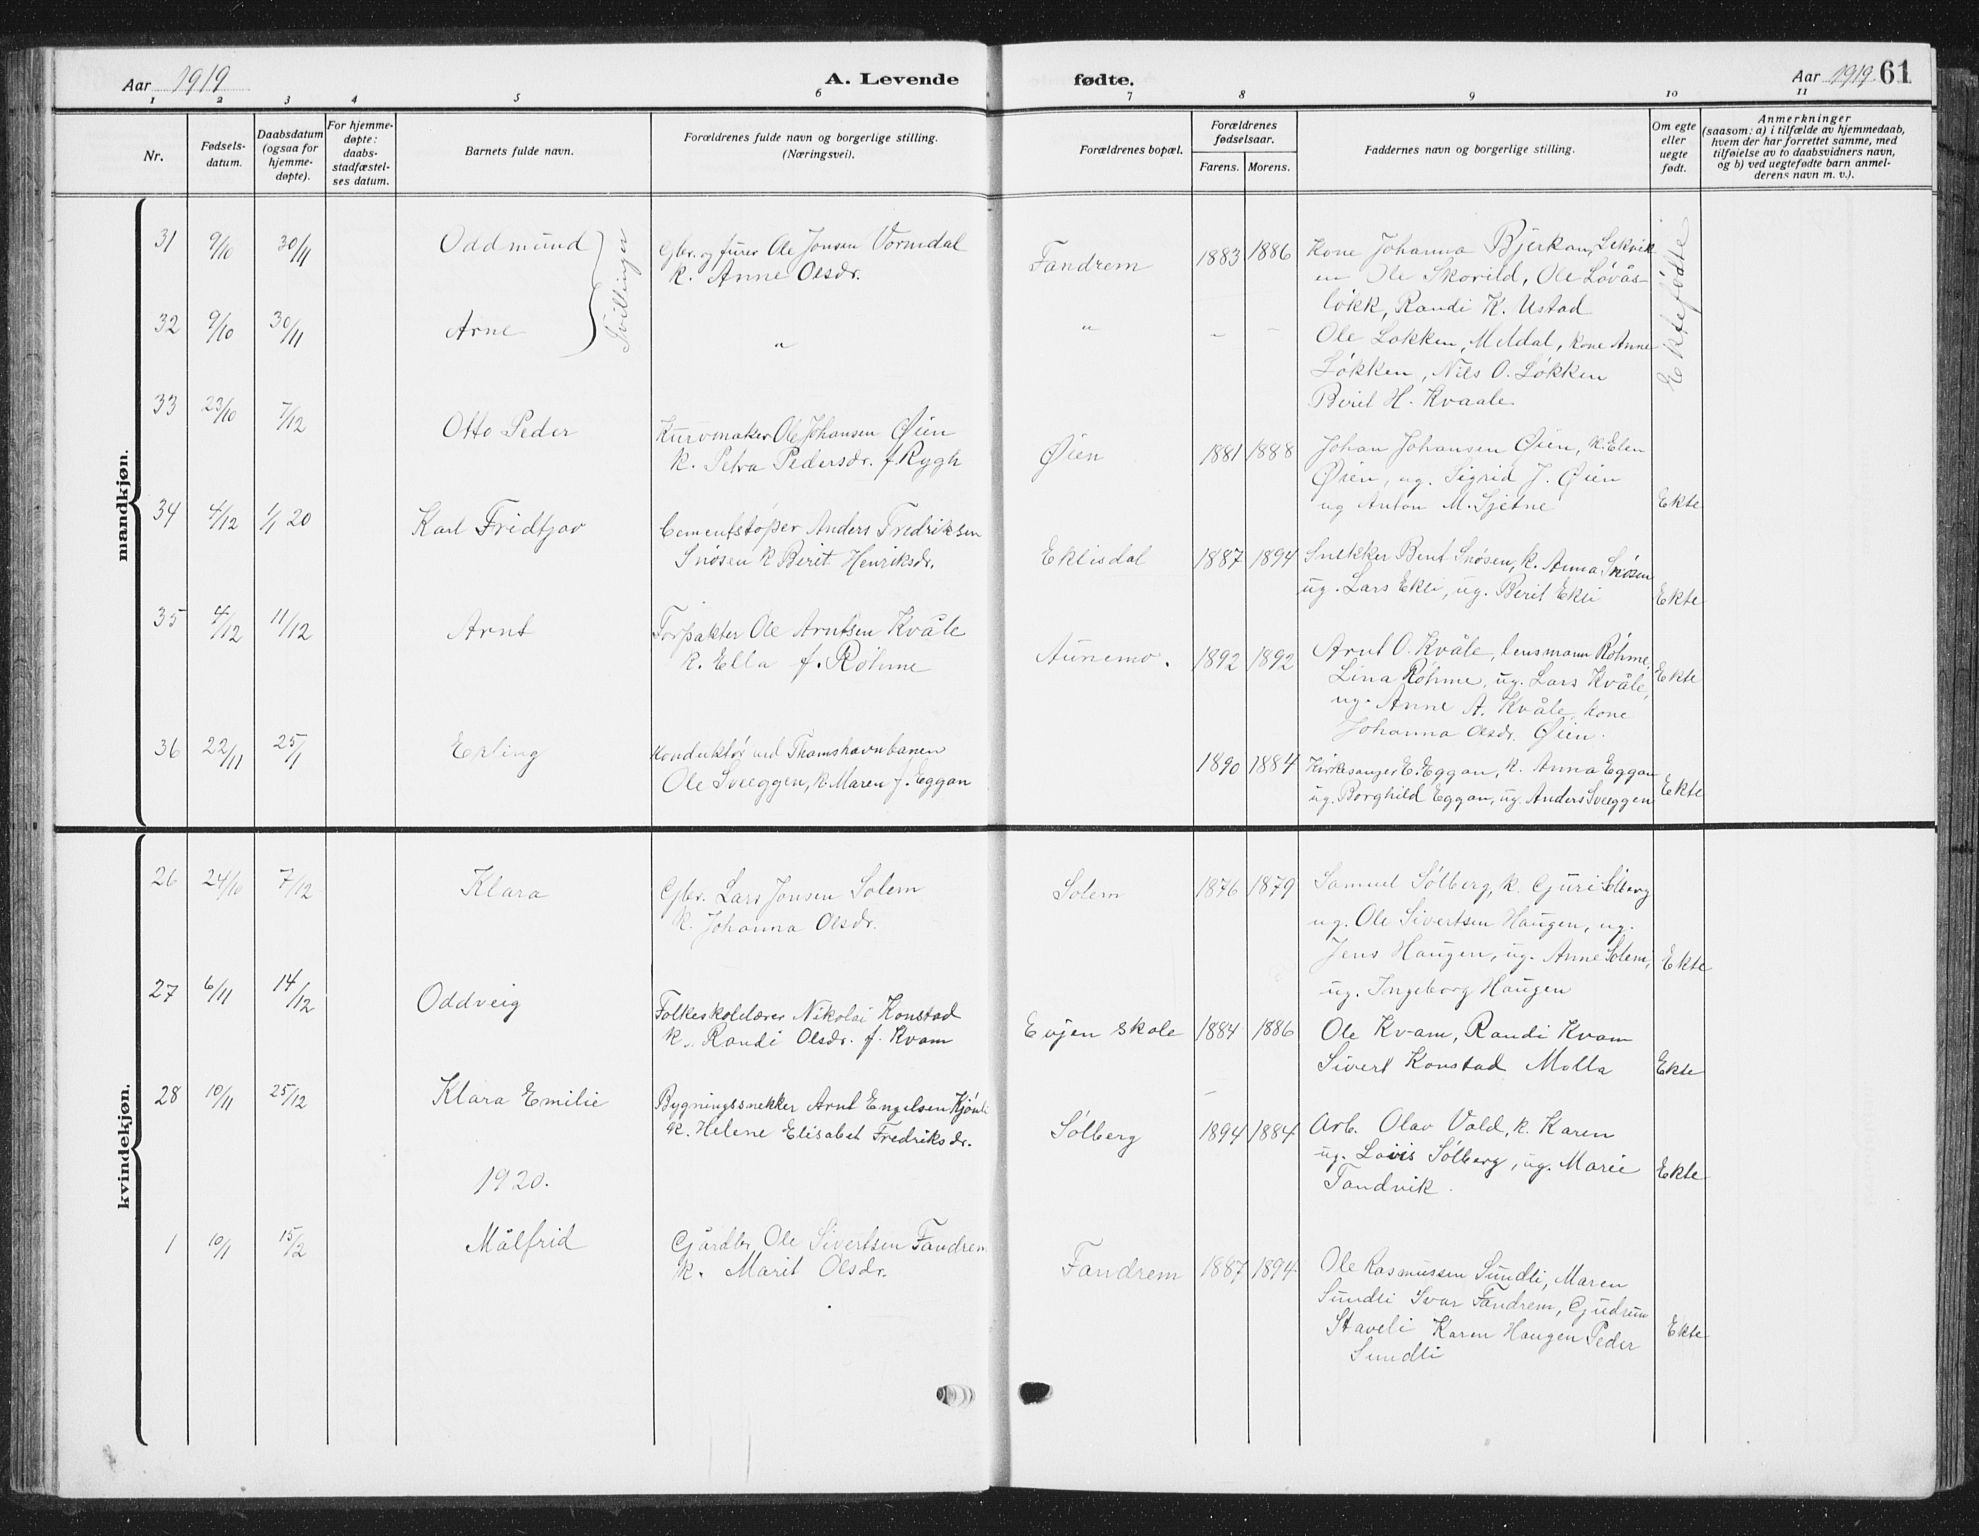 Aar 1919
A. Levende
fødte.
Aar 1919 61
1 2 3 4 5 6 7 8 9 10 11
Nr.
Fødsels-
datum.
Daabsdatum
(ogsaa for
hjemme-
døpte).
For hjemme-
døpte:
daabs-
stadfæstel-
ses datum.
Barnets fulde navn.
Forældrenes fulde navn og borgerlige stilling.
(Næringsvei).
Forældrenes bopæl.
Forældrenes
fødselsaar.
Farens. Morens.
Faddernes navn og borgerlige stilling.
Om egte
eller
uegte
født.
Anmerkninger
(saasom: a) i tilfælde av hjemmedaab,
hvem der har forrettet samme, med
tilføielse av to daabsvidners navn,
og b) ved uegtefødte barn anmel-
derens navn m. v.).
mandkjøn.
31 9/10 30/11 Oddmund
Tvillinger
Gbr. og furer Ole Jonsen Vormdal
k. Anne Olsdr.
Fandrem 1883 1886
Kone Johanna Bjerkan, Lekvik
en Ole Skorild, Ole Løvås-
løkk, Randi K. Ustad
Ektefødte
32 9/10 30/11 Arne
"
" - -
Ole Løkken, Meldal, kone Anne
Løkken, Nils O. Løkken
Berit H. Kvaale
33 23/10 7/12 Otto Peder
Kurvmaker Ole Johansen Øien
k. Petra Pedersdr. f. Rygh
Øien 1881 1888
Johan Johansen Øien, k. Elen
Øien, ug. Sigrid J. Øien
ug Anton M. Sjetne
Ekte
34 4/12 1/1 20 Karl Fridtjov
Cementstøper Anders Fredriksen
Snøsen k Berit Henriksdr.
Eklisdal 1887 1894
Snekker Bent Snøsen, k. Anna Snøsen
ug. Lars Ekli, ug. Berit Ekli
Ekte
35 4/12 11/12 Arnt
Forpakter Ole Arntsen Kvåle
k. Ella f. Røhme
Aunemo. 1892 1892
Arnt O. Kvåle, lensmann Røhme,
Lina Røhme, ug. Lars Kvåle,
ug. Anne A. Kvåle, kone
Johanna Olsdr. Øien.
Ekte
36 22/11 25/1 Erling
Konduktør ved Thamshavnbanen
Ole Sveeggen, k. Maren f. Eggan
1890 1884
Kirkesanger E. Eggan, k. Anna Eggan
ug. Borghild Eggan, ug. Anders Sveeggen
Ekte
kvindekjøn.
26 24/10 7/12 Klara
Gbr. Lars Jonsen Solem
k. Johanna Olsdr.
Solem 1876 1879
Samuel Sølberg, k. Guri Sølberg
ug. Ole Sivertsen Haugen, ug.
Jens Haugen, ug. Anne Solem,
ug. Ingeborg Haugen
Ekte
27 6/11 14/12 Oddveig
Folkeskolelærer Nikolai Konstad
k. Randi Olsdr. f. Kvam
Evjen skole 1884 1886
Ole Kvam, Randi Kvam
Sivert Konstad Molla
Ekte
28 10/11 25/12 Klara Emilie
Bygningssnekker Arnt Engelsen
k. Helene Elisabet Fredriksdr.
Sølberg 1894 1884
Arb. Olav Vold, k. Karen
ug. Lovis Sølberg, ug. Marie
Tandvik.
Ekte
1920.
1 10/1 15/2 Målfrid
Gårdbr. Ole Sivertsen Fandrem
k. Marit Olsdr.
Fandrem 1887 1894
Ole Rasmussen Sundli, Maren
Sundli Ivar Fandrem, Gudrun
Staveli Karen Haugen Peder
Sundli
Ekte